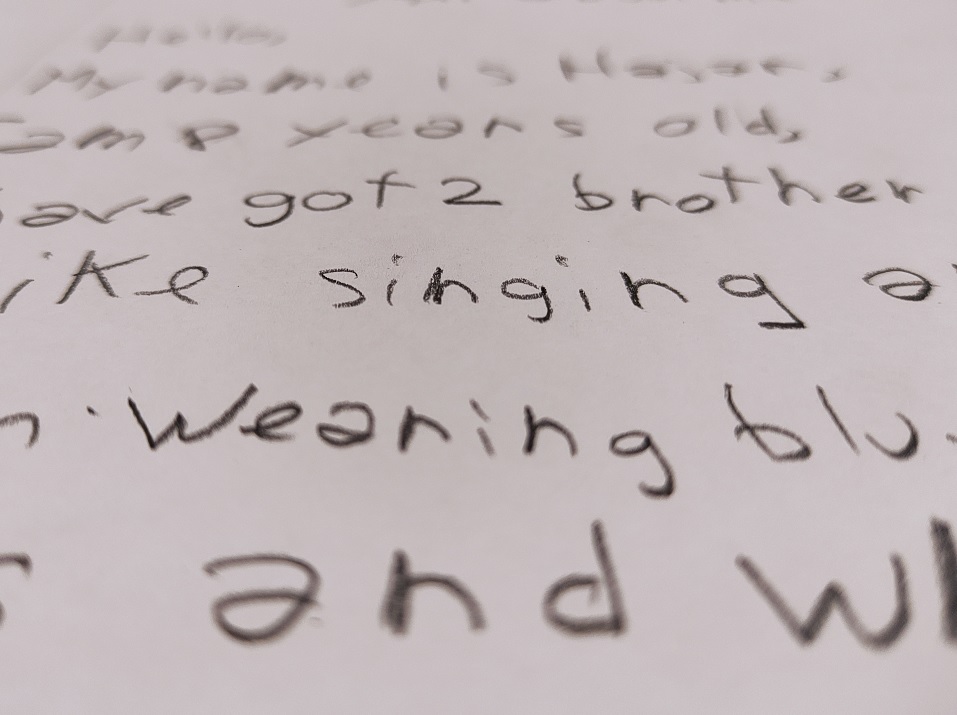 Hello,
My name is
am 8 years old,
ave got 2 brother
ike singing a
wearing blu
and wh